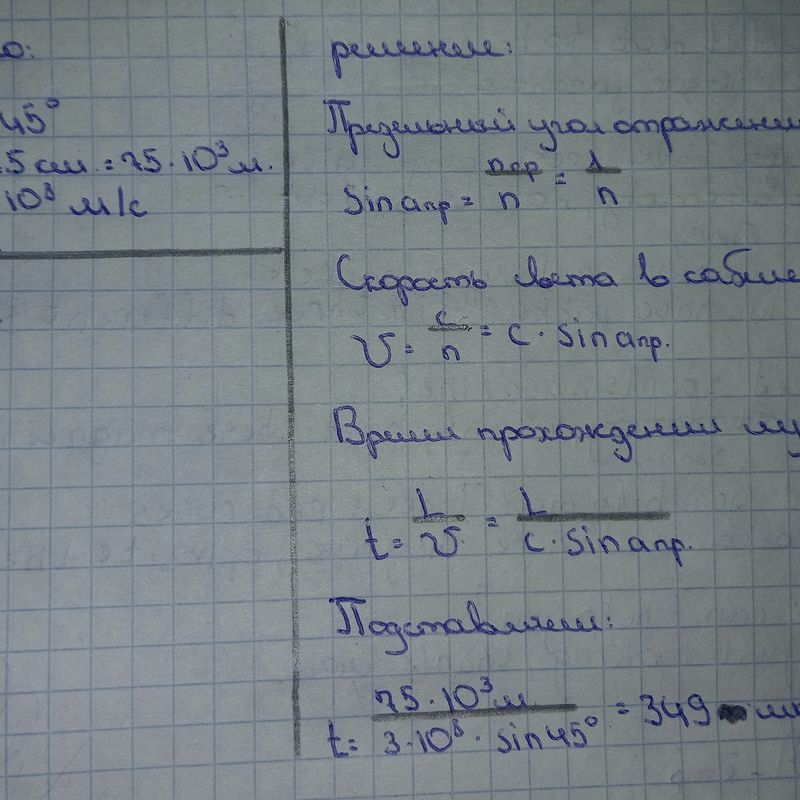 о:
45°
5 см = 75·10³ м.
10⁸ м/с
решение:
Предельный угол отражении
sin aпр = nвр/n = 1/n
Скорость света в кабеле
v = c/n = c · sin aпр.
Время прохождении лу
t = L/v = L/(c · sin aпр.)
Подставляем:
t = 75·10³ м/(3·10⁸ · sin45°) = 349 мк